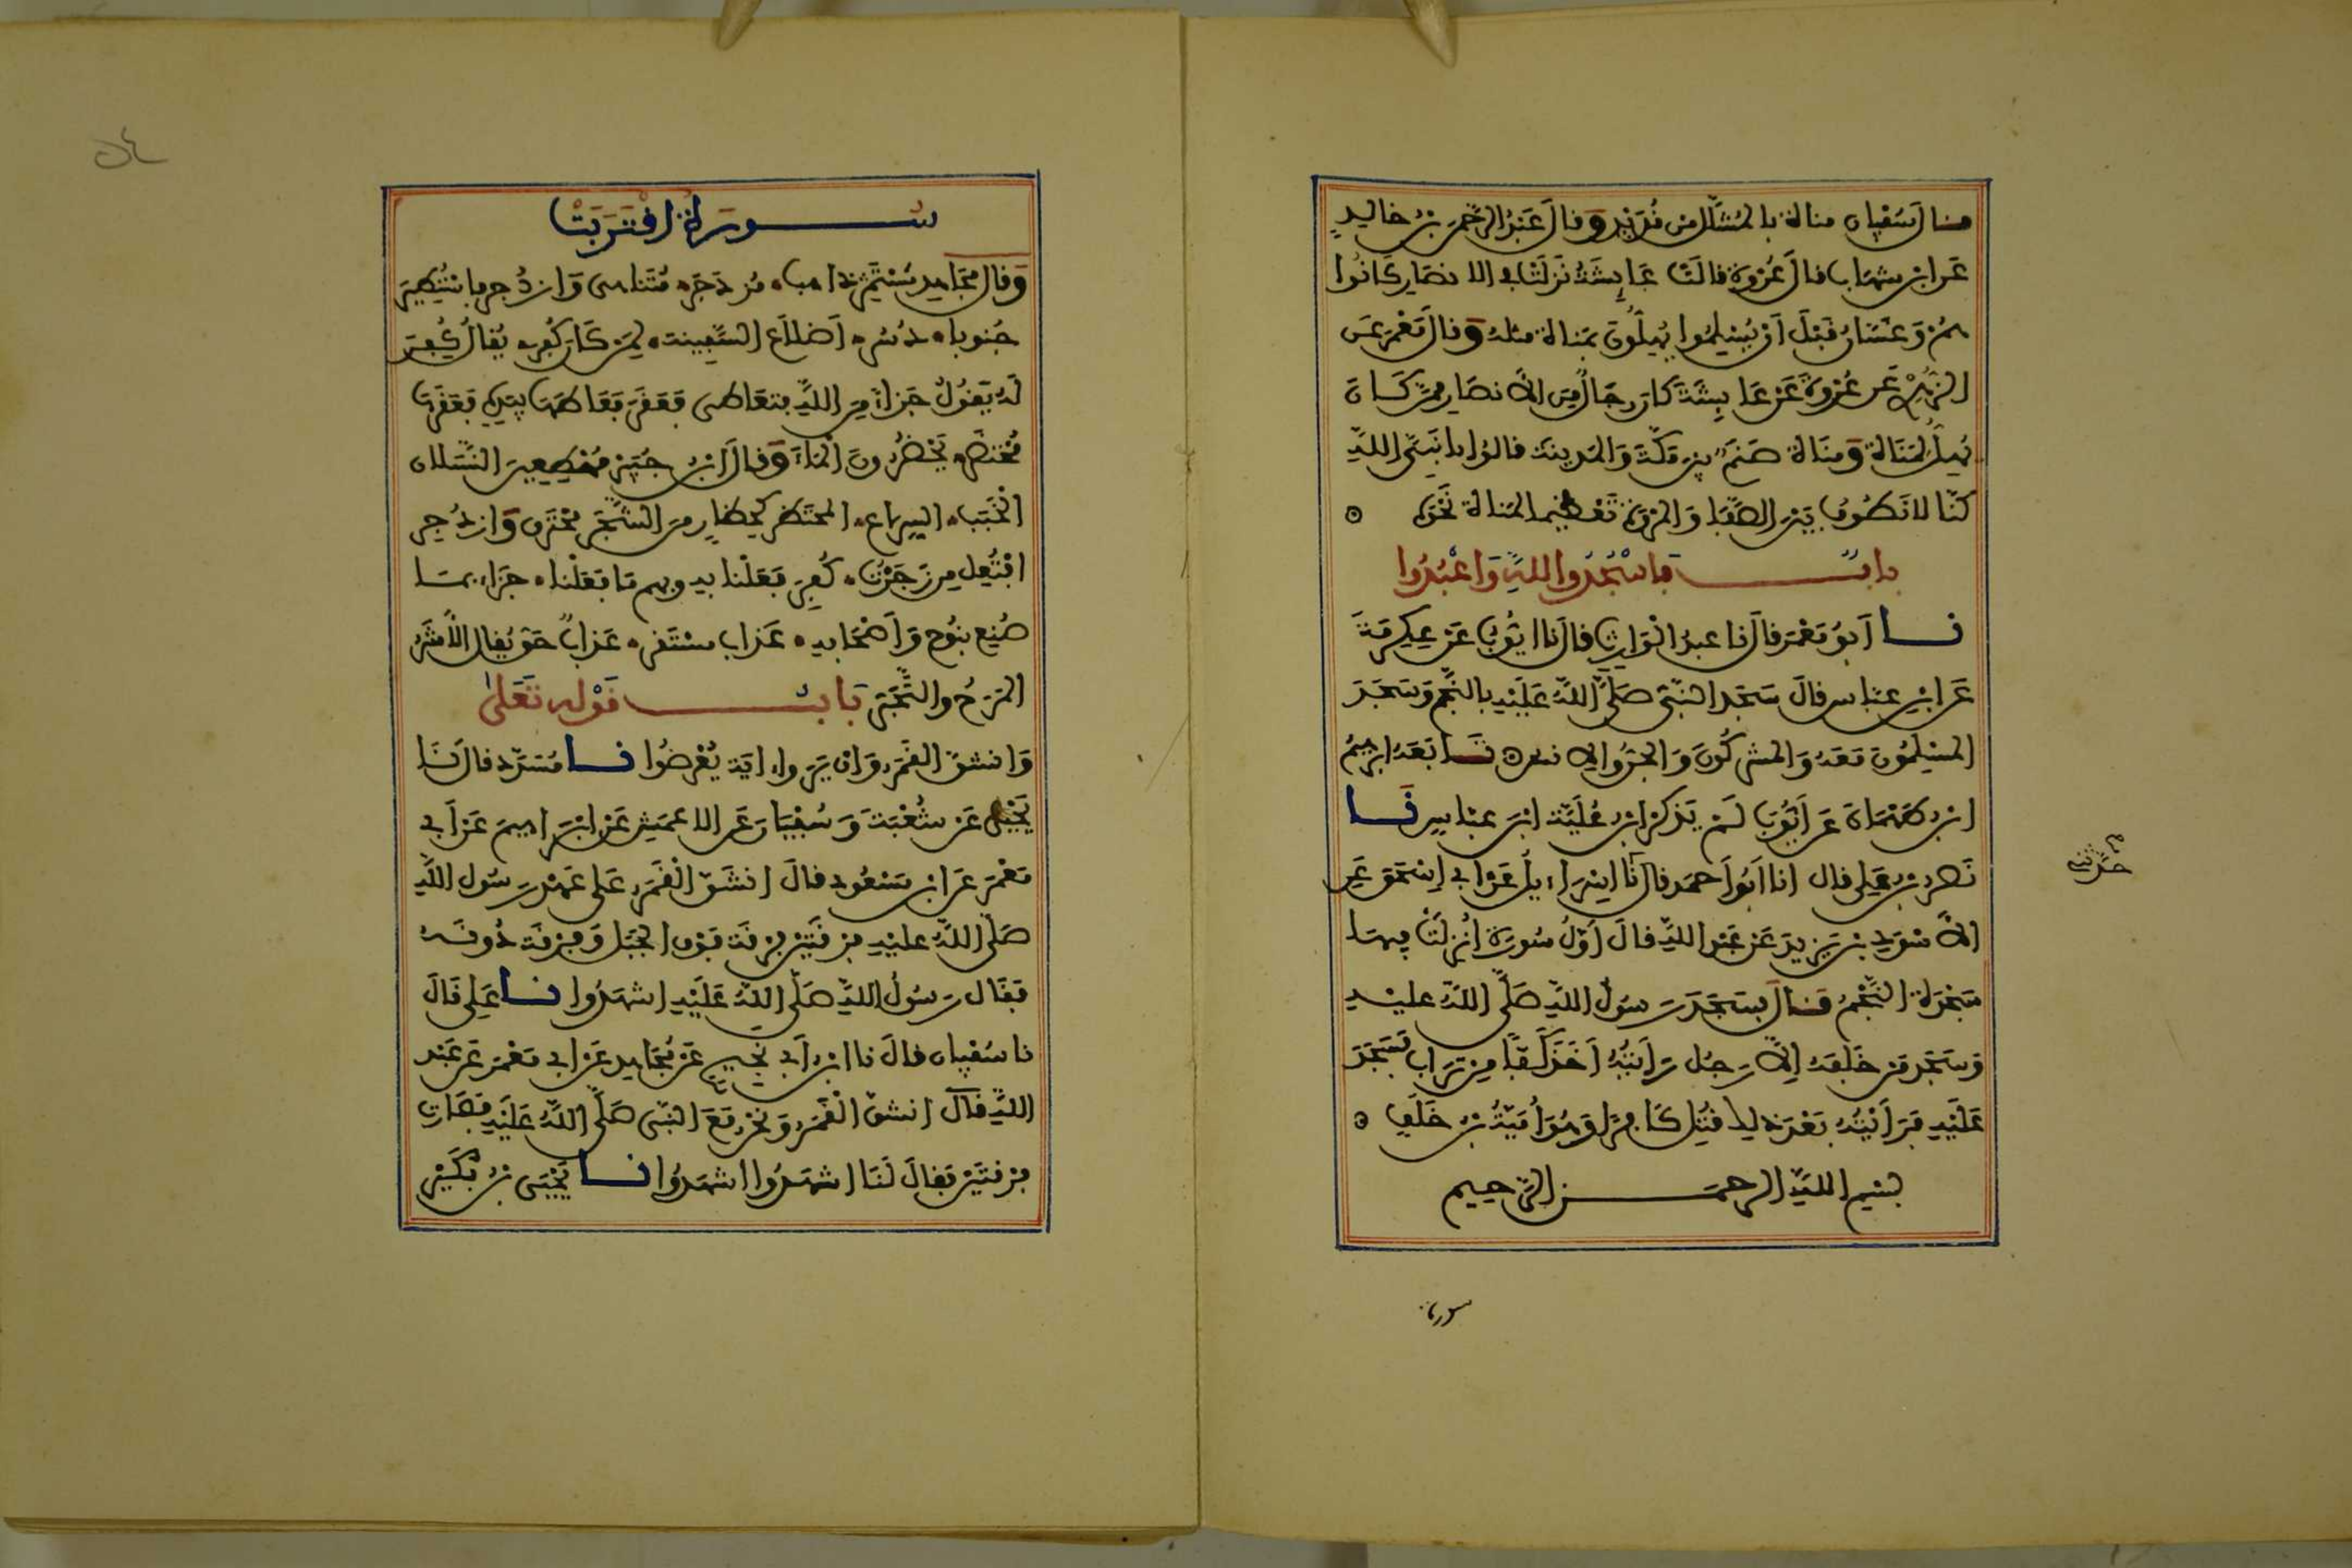 قال سفيان مناة بالمشلل من قديد وقال عبد الرحمن بن خالد
عن ابن شهاب قال عروة قالت عايشة نزلت في الانصار كانوا
هم وغسان قبل أن يسلموا يهلون لمناة مثله وقال معمر عن
الزهري عن عروة عن عايشة كان رجال من الأنصار ممن كان
يهل لمناة ومناة صنم بين مكة والمدينة قالوا يا نبي الله
كنا لا نطوف بين الصفا والمروة تعظيما لمناة نحوه
باب فاسجدوا لله واعبدوا
نا أبو معمر قال نا عبد الوارث قال نا ايوب عن عكرمة
عن ابن عباس قال سجد النبي صلى الله عليه بالنجم وسجد
المسلمون معه والمشركون والجن والانس تابعه ابرهيم
ابن طهمان عن أيوب لم يذكر ابن علية ابن عباس نا
نصر بن علي قال انا أبو أحمد قال نا إسراءيل عن أبي إسحق عن
الأسود بن يزيد عن عبد الله قال أول سورة أنزلت فيها
سجدة النجم قال فسجد رسول الله صلى الله عليه
وسجد من خلفه إلا رجل رأيته أخذ كفا من تراب فسجد
عليه فرأيته بعد ذلك قتل كافرا وهو أمية بن خلف
بسم الله الرحمن الرحيم
سورة
سورة اقتربت
وقال مجاهد مستمر ذاهب مزدجر متناهى وازدجر فاستطير
جنونا دسر أضلاع السفينة لمن كان كفر يقال كفر
له يقول جزاء من الله فتعاطى فعقر فعاطها بيده فعقرها
محتضر يحضرون الماء وقال ابن جبير مهطعين النسلان
الخبب السراع المحتظر كحظار من الشجر محترق وازدجر
افتعل من زجرت كفر فعلنا به وبهم ما فعلنا جزاء بما
صنع بنوح وأصحابه عذاب مستقر عذاب حق يقال الأشر
المرح والتجبر باب قوله تعلى
وانشق القمر وان يروا اية يعرضوا نا مسدد قال نا
يحيى عن شعبة وسفيان عن الاعمش عن ابراهيم عن أبي
معمر عن ابن مسعود قال انشق القمر على عهد رسول الله
صلى الله عليه فرقتين فرقة فوق الجبل وفرقة دونه
فقال رسول الله صلى الله عليه اشهدوا نا علي قال
نا سفيان قال نا ابن أبي نجيح عن مجاهد عن أبي معمر عن عبد
الله قال انشق القمر ونحن مع النبي صلى الله عليه فصارت
فرقتين فقال لنا اشهدوا اشهدوا نا يحيى بن بكير